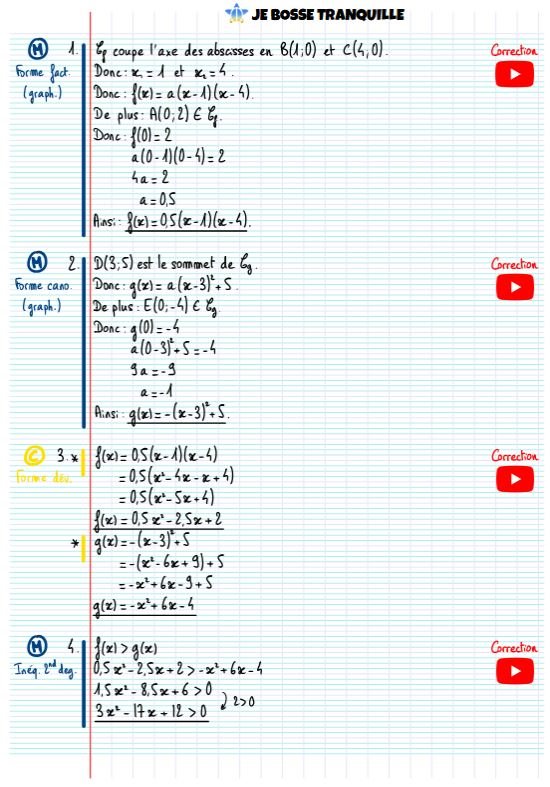 JE BOSSE TRANQUILLE
M 1. 𝒞f coupe l'axe des abscisses en B(1;0) et C(4;0). Correction
Forme fact. Donc : x₁ = 1 et x₂ = 4.
(graph.) Donc : f(x) = a(x-1)(x-4).
De plus : A(0;2) ∈ 𝒞f.
Donc : f(0) = 2
a(0-1)(0-4) = 2
4a = 2
a = 0,5
Ainsi : f(x) = 0,5(x-1)(x-4).
M 2. D(3;5) est le sommet de 𝒞g. Correction
Forme cano. Donc : g(x) = a(x-3)² + 5.
(graph.) De plus : E(0;-4) ∈ 𝒞g.
Donc : g(0) = -4
a(0-3)² + 5 = -4
9a = -9
a = -1
Ainsi : g(x) = -(x-3)² + 5.
C 3. * f(x) = 0,5(x-1)(x-4) Correction
Forme dév. = 0,5(x² - 4x - x + 4)
= 0,5(x² - 5x + 4)
f(x) = 0,5x² - 2,5x + 2
* g(x) = -(x-3)² + 5
= -(x² - 6x + 9) + 5
= -x² + 6x - 9 + 5
g(x) = -x² + 6x - 4
M 4. f(x) > g(x) Correction
Inéq. 2nd deg. 0,5x² - 2,5x + 2 > -x² + 6x - 4
1,5x² - 8,5x + 6 > 0
2>0
3x² - 17x + 12 > 0